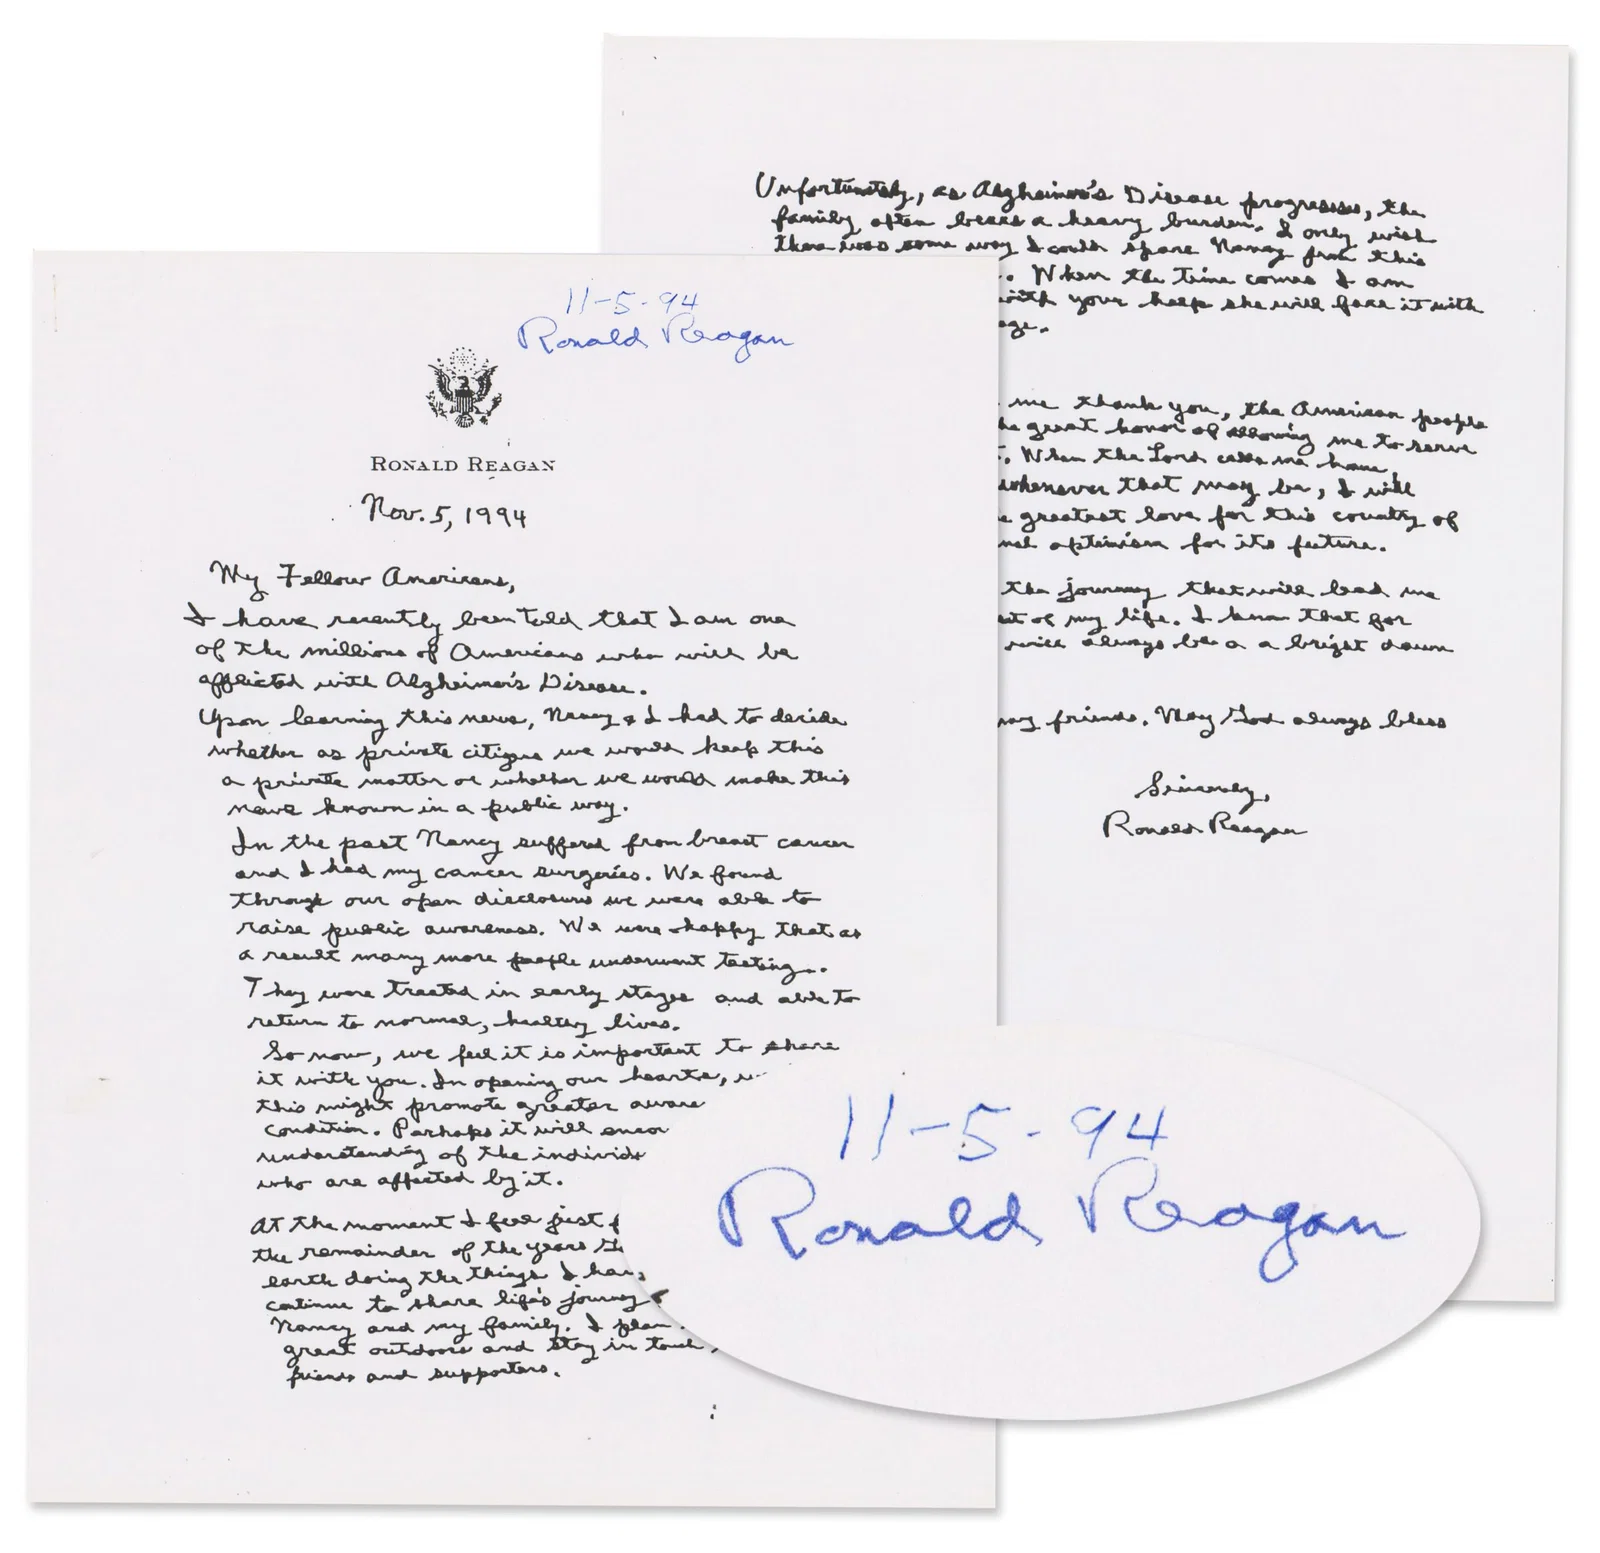 11-5-94
Ronald Reagan
RONALD REAGAN
Nov. 5, 1994
My Fellow Americans,
I have recently been told that I am one
of the millions of Americans who will be
afflicted with Alzheimer's Disease.
Upon learning this news, Nancy & I had to decide
whether as private citizens we would keep this
a private matter or whether we would make this
news known in a public way.
In the past Nancy suffered from breast cancer
and I had my cancer surgeries. We found
through our open disclosures we were able to
raise public awareness. We were happy that as
a result many more people underwent testing.
They were treated in early stages and able to
return to normal, healthy lives.
So now, we feel it is important to share
it with you. In opening our hearts, w
this might promote greater aware
condition. Perhaps it will encou
understanding of the individu
who are affected by it.
At the moment I feel just f
the remainder of the years G
earth doing the things I hav
continue to share life's journey
Nancy and my family. I plan
great outdoors and stay in touch
friends and supporters.
Unfortunately, as Alzheimer's Disease progresses, the
family often bears a heavy burden. I only wish
there was some way I could spare Nancy from this
. When the time comes I am
with your help she will face it with
age.
me thank you, the American people
he great honor of allowing me to serve
t. When the Lord calls me home,
whenever that may be, I will
e greatest love for this country of
nal optimism for its future.
the journey that will lead me
et of my life. I know that for
will always be a a bright dawn
my friends. May God always bless
Sincerely,
Ronald Reagan
11-5-94
Ronald Reagan